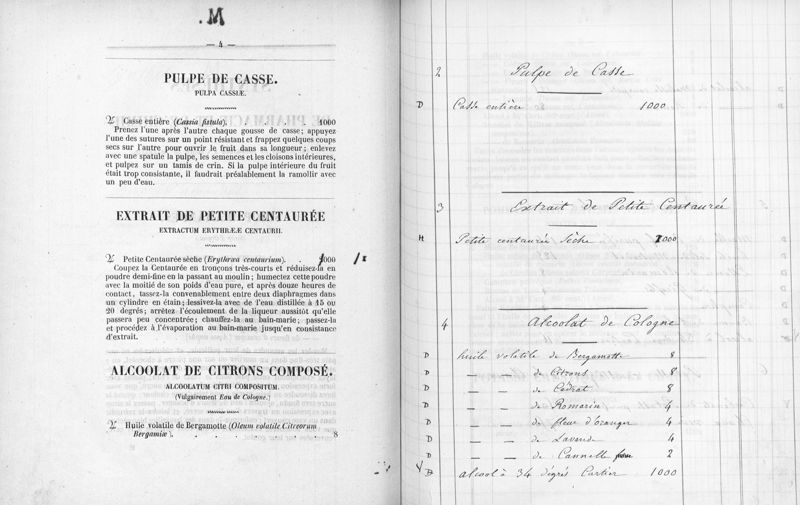 M
— 4 —
PULPE DE CASSE.
PULPA CASSIÆ.
♃ Casse entière (Cassia fistula). . . . 1000
Prenez l'une après l'autre chaque gousse de casse; appuyez
l'une des sutures sur un point résistant et frappez quelques coups
secs sur l'autre pour ouvrir le fruit dans sa longueur; enlevez
avec une spatule la pulpe, les semences et les cloisons intérieures,
et pulpez sur un tamis de crin. Si la pulpe intérieure du fruit
était trop consistante, il faudrait préalablement la ramollir avec
un peu d'eau.
EXTRAIT DE PETITE CENTAURÉE
EXTRACTUM ERYTHRÆÆ CENTAURII.
♃ Petite Centaurée sèche (Erythræa centaurium). 1000
Coupez la Centaurée en tronçons très-courts et réduisez-la en
poudre demi-fine en la passant au moulin; humectez cette poudre
avec la moitié de son poids d'eau pure, et après douze heures de
contact, tassez-la convenablement entre deux diaphragmes dans
un cylindre en étain; lessivez-la avec de l'eau distillée à 15 ou
20 degrés; arrêtez l'écoulement de la liqueur aussitôt qu'elle
passera peu concentrée; chauffez-la au bain-marie; passez-la
et procédez à l'évaporation au bain-marie jusqu'en consistance
d'extrait.
ALCOOLAT DE CITRONS COMPOSÉ.
ALCOOLATUM CITRI COMPOSITUM.
(Vulgairement Eau de Cologne.)
♃ Huile volatile de Bergamotte (Oleum volatile Citreorum
Bergamiæ). . . . . . . 8
2 Pulpe de Casse
D Casse entière 1000
3 Extrait de Petite Centaurée
H Petite centaurée Sèche 1000
4 Alcoolat de Cologne
D huile volatile de Bergamotte 8
D — — de Citrons 8
D — — de Cédrat 8
D — — de Romarin 4
D — — de fleur d'oranger 4
D — — de Lavande 4
D — — de Cannelle 2
D alcool à 34 dégrés Cartier 1000